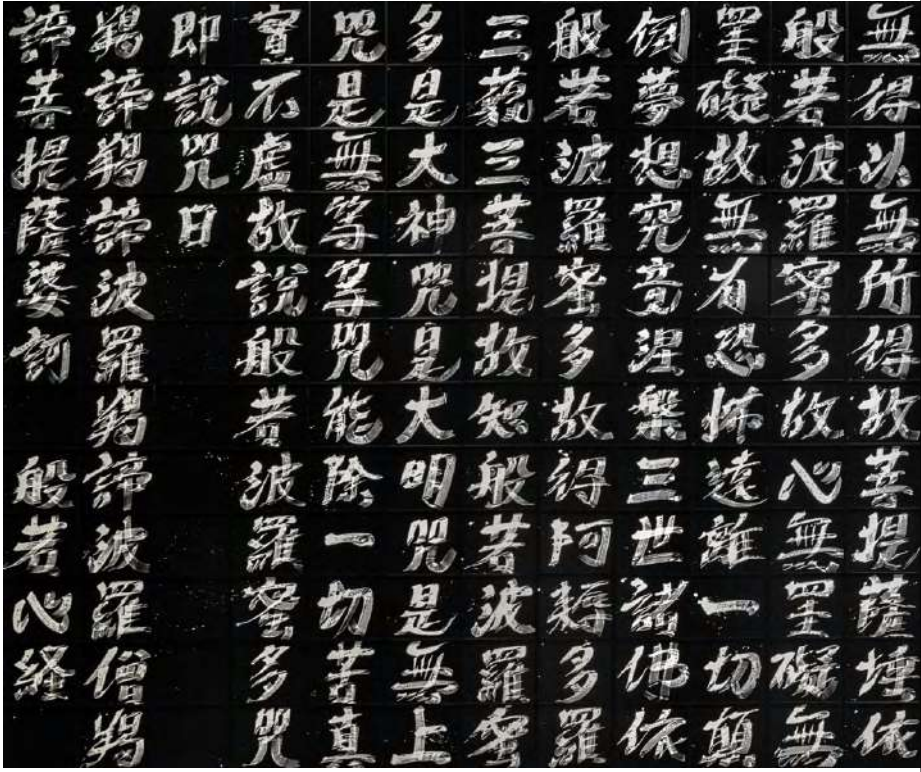 無得以無所得故菩提薩埵依
般若波羅蜜多故心無罣礙無
罣礙故無有恐怖遠離一切顛
倒夢想究竟涅槃三世諸佛依
般若波羅蜜多故得阿耨多羅
三藐三菩提故知般若波羅蜜
多是大神咒是大明咒是無上
咒是無等等咒能除一切苦真
實不虛故說般若波羅蜜多咒
即說咒曰
羯諦羯諦波羅羯諦波羅僧羯
諦菩提薩婆訶 般若心経